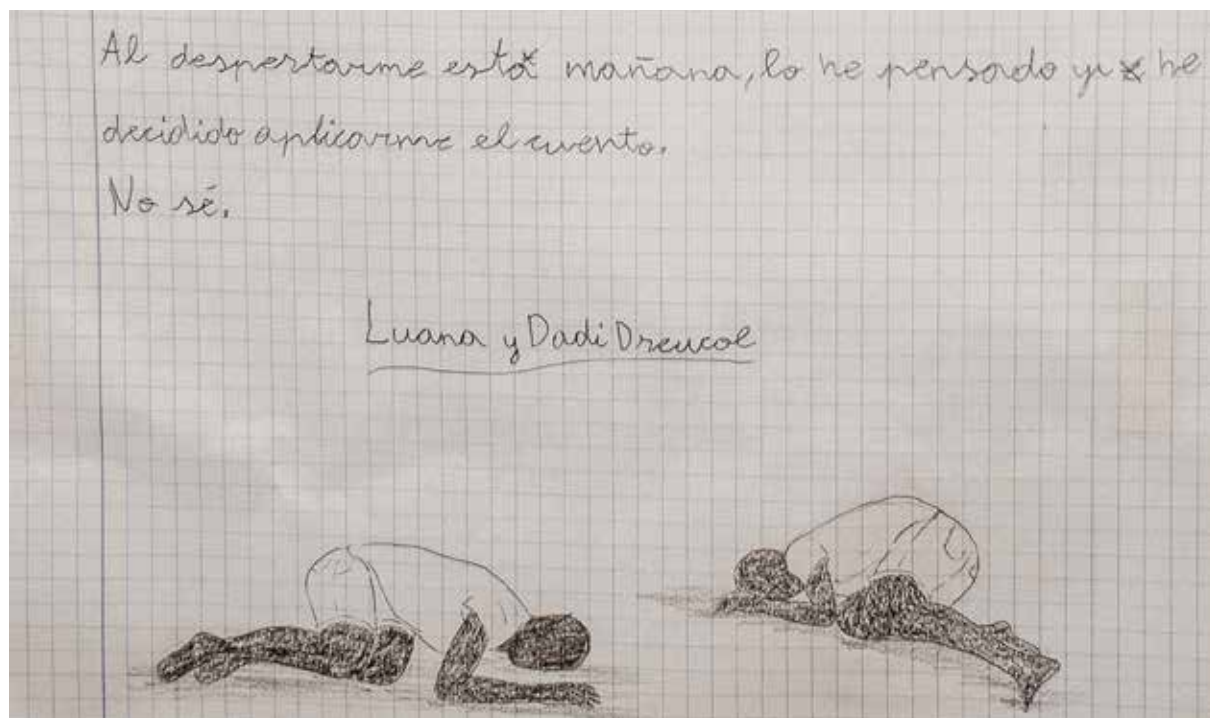 Al despertarme esta mañana, lo he pensado y he
decidido aplicarme el cuento.
No sé.
Luana y Dadi Dreucol